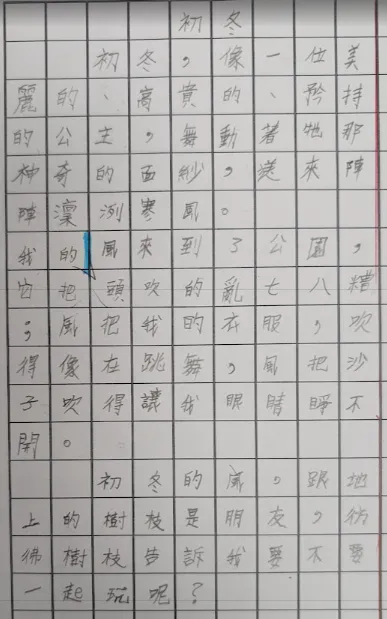 初冬
初冬，像一位美
麗的、高貴的、矜持
的公主，舞動著牠那
神奇的面紗，送來陣
陣凜冽寒風。
我的風來到了公園，
它把頭吹的亂七八糟
，風把我的衣服，吹
得像在跳舞，風把沙
子吹得讓我眼睛睜不
開。
初冬的風，跟地
上的樹枝是朋友，彷
彿樹枝告訴我要不要
一起玩呢？